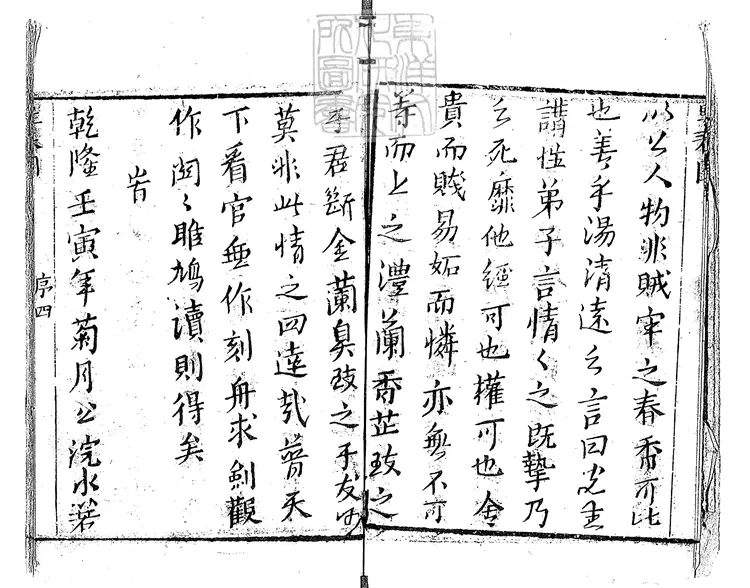 人物非賊牢之春香可比
也善乎湯清遠之言曰先生
講性弟子言情〻之既摯乃
之死靡他經可也權可也舍
貴而賤易妬而憐亦無不可
等而上之澧蘭香芷致之
君斷金蘭臭致之于友
莫非此情之回達哉普天
下看官垂作刻舟求劍觀
作関〻雎鳩讀則得矣
峕
乾隆壬寅年菊月公浣水
序四